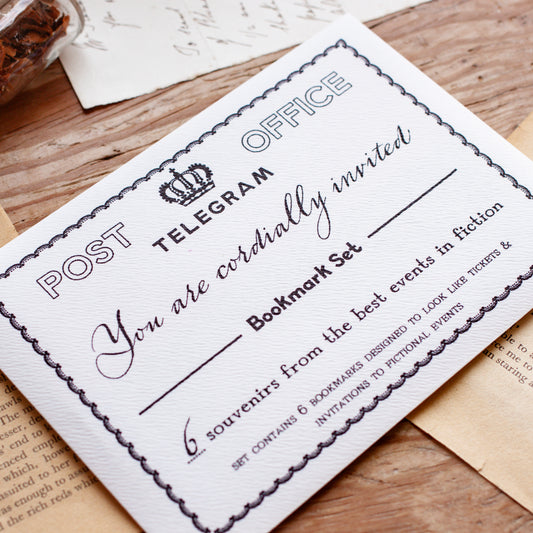 POST TELEGRAM OFFICE
You are cordially invited
Bookmark Set
6 souvenirs from the best events in fiction
SET CONTAINS 6 BOOKMARKS DESIGNED TO LOOK LIKE TICKETS &
INVITATIONS TO FICTIONAL EVENTS